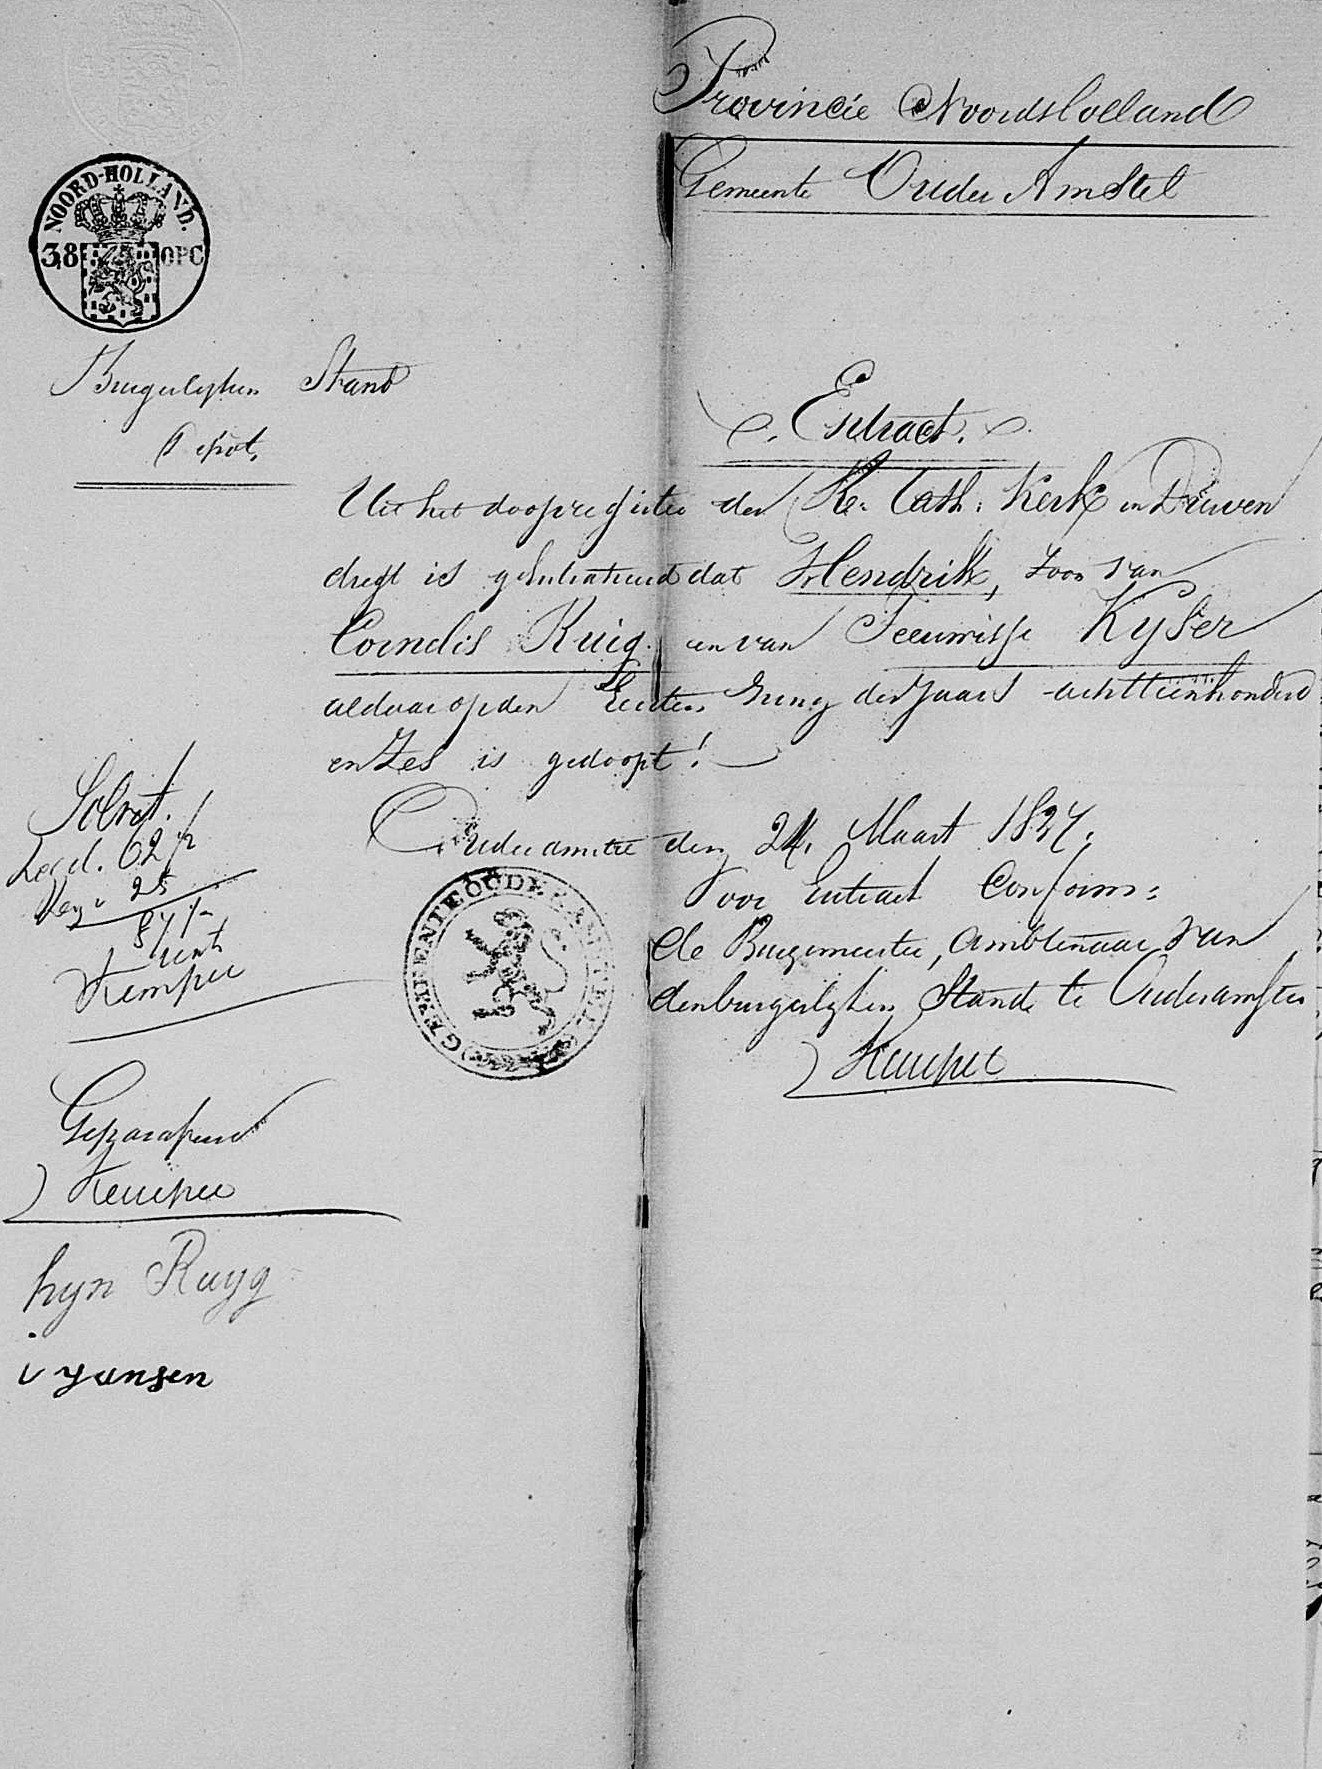 Provincie Noordholland
Gemeente Ouder Amstel
NOORD-HOLLAND.
38 OPC
Burgerlyken Stand
Depot,
Extract.
Uit het doopregister der R. Cath: Kerk in Duiven
dregt is geëxtraheerd dat Hendrik, zoon van
Cornelis Ruig en van Teeuwisje Kyser
aldaar op den Eersten Juny des Jaars achttienhonderd
en Zes is gedoopt!
Ouderamstel den 24. Maart 1827.
Voor Extract Conform:
de Burgemeester, Ambtenaar van
den burgerlyken Stand te Ouderamstel
Kemper
GEMEENTE OUDER AMSTEL
Solvit.
Leg. 62 ½
Zeg. 25
87 ½
Cents
Kemper
Geparafeerd
Kemper
hyn Ruyg
i Jansen